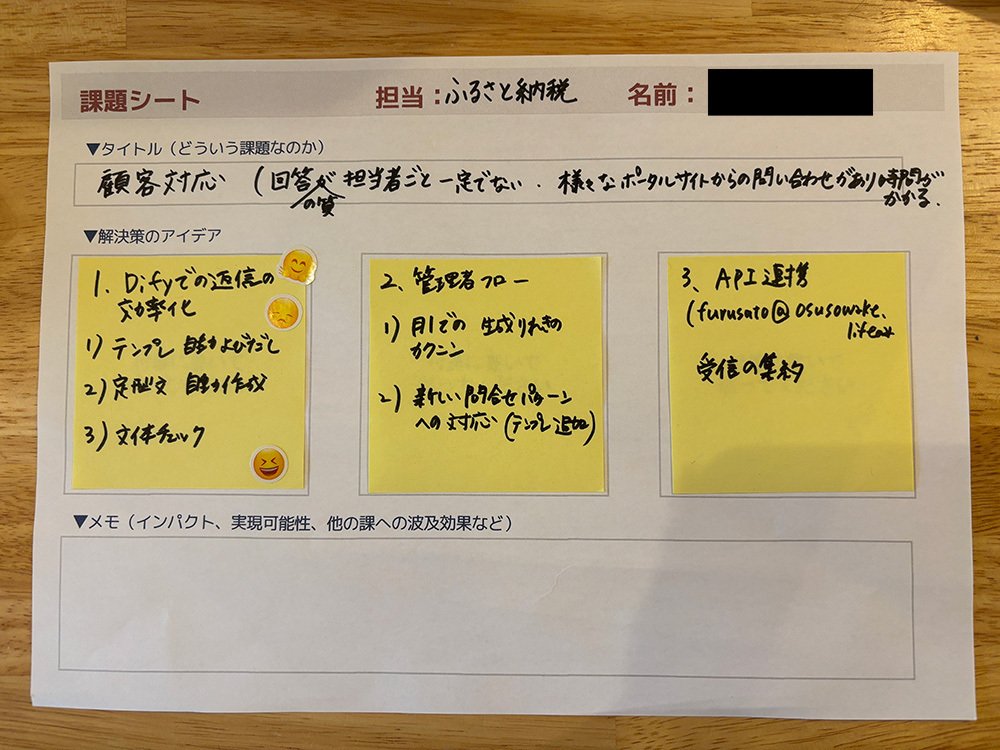 課題シート
担当：ふるさと納税
名前：
▼タイトル（どういう課題なのか）
顧客対応 (回答の質が担当者ごと一定でない. 様々なポータルサイトからの問い合わせがあり時間がかかる.
▼解決策のアイデア
1. Difyでの返信の
効率化
1) テンプレ 自動よびだし
2) 定型文 自動作成
3) 文体チェック
2. 管理者フロー
1) 月1での 生成りれきの
カクニン
2) 新しい問合せパターン
への対応 (テンプレ追加)
3. API連携
(furusato@osusowake.
受信の集約
▼メモ（インパクト、実現可能性、他の課への波及効果など）